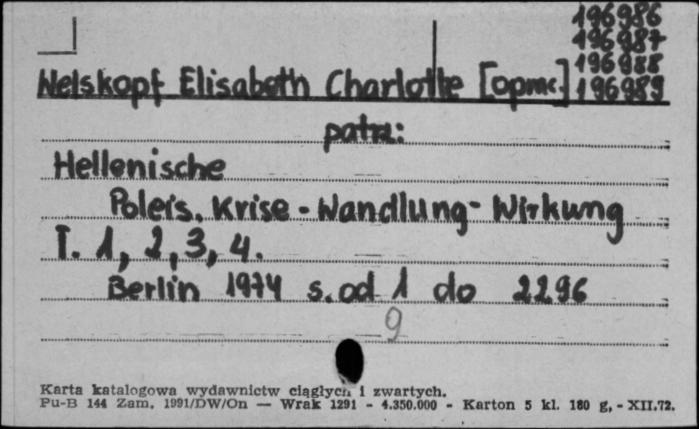 196986
196987
196988
Welskopf Elisabeth Charlotte [oprac.] 196989
patrz:
Hellenische
Poleis. Krise - Wandlung - Wirkung
T. 1, 2, 3, 4.
Berlin 1974 s. od 1 do 2296
9
Karta katalogowa wydawnictw ciągłych i zwartych.
Pu-B 144 Zam. 1991/DW/On — Wrak 1291 - 4.350.000 - Karton 5 kl. 180 g, - XII.72.